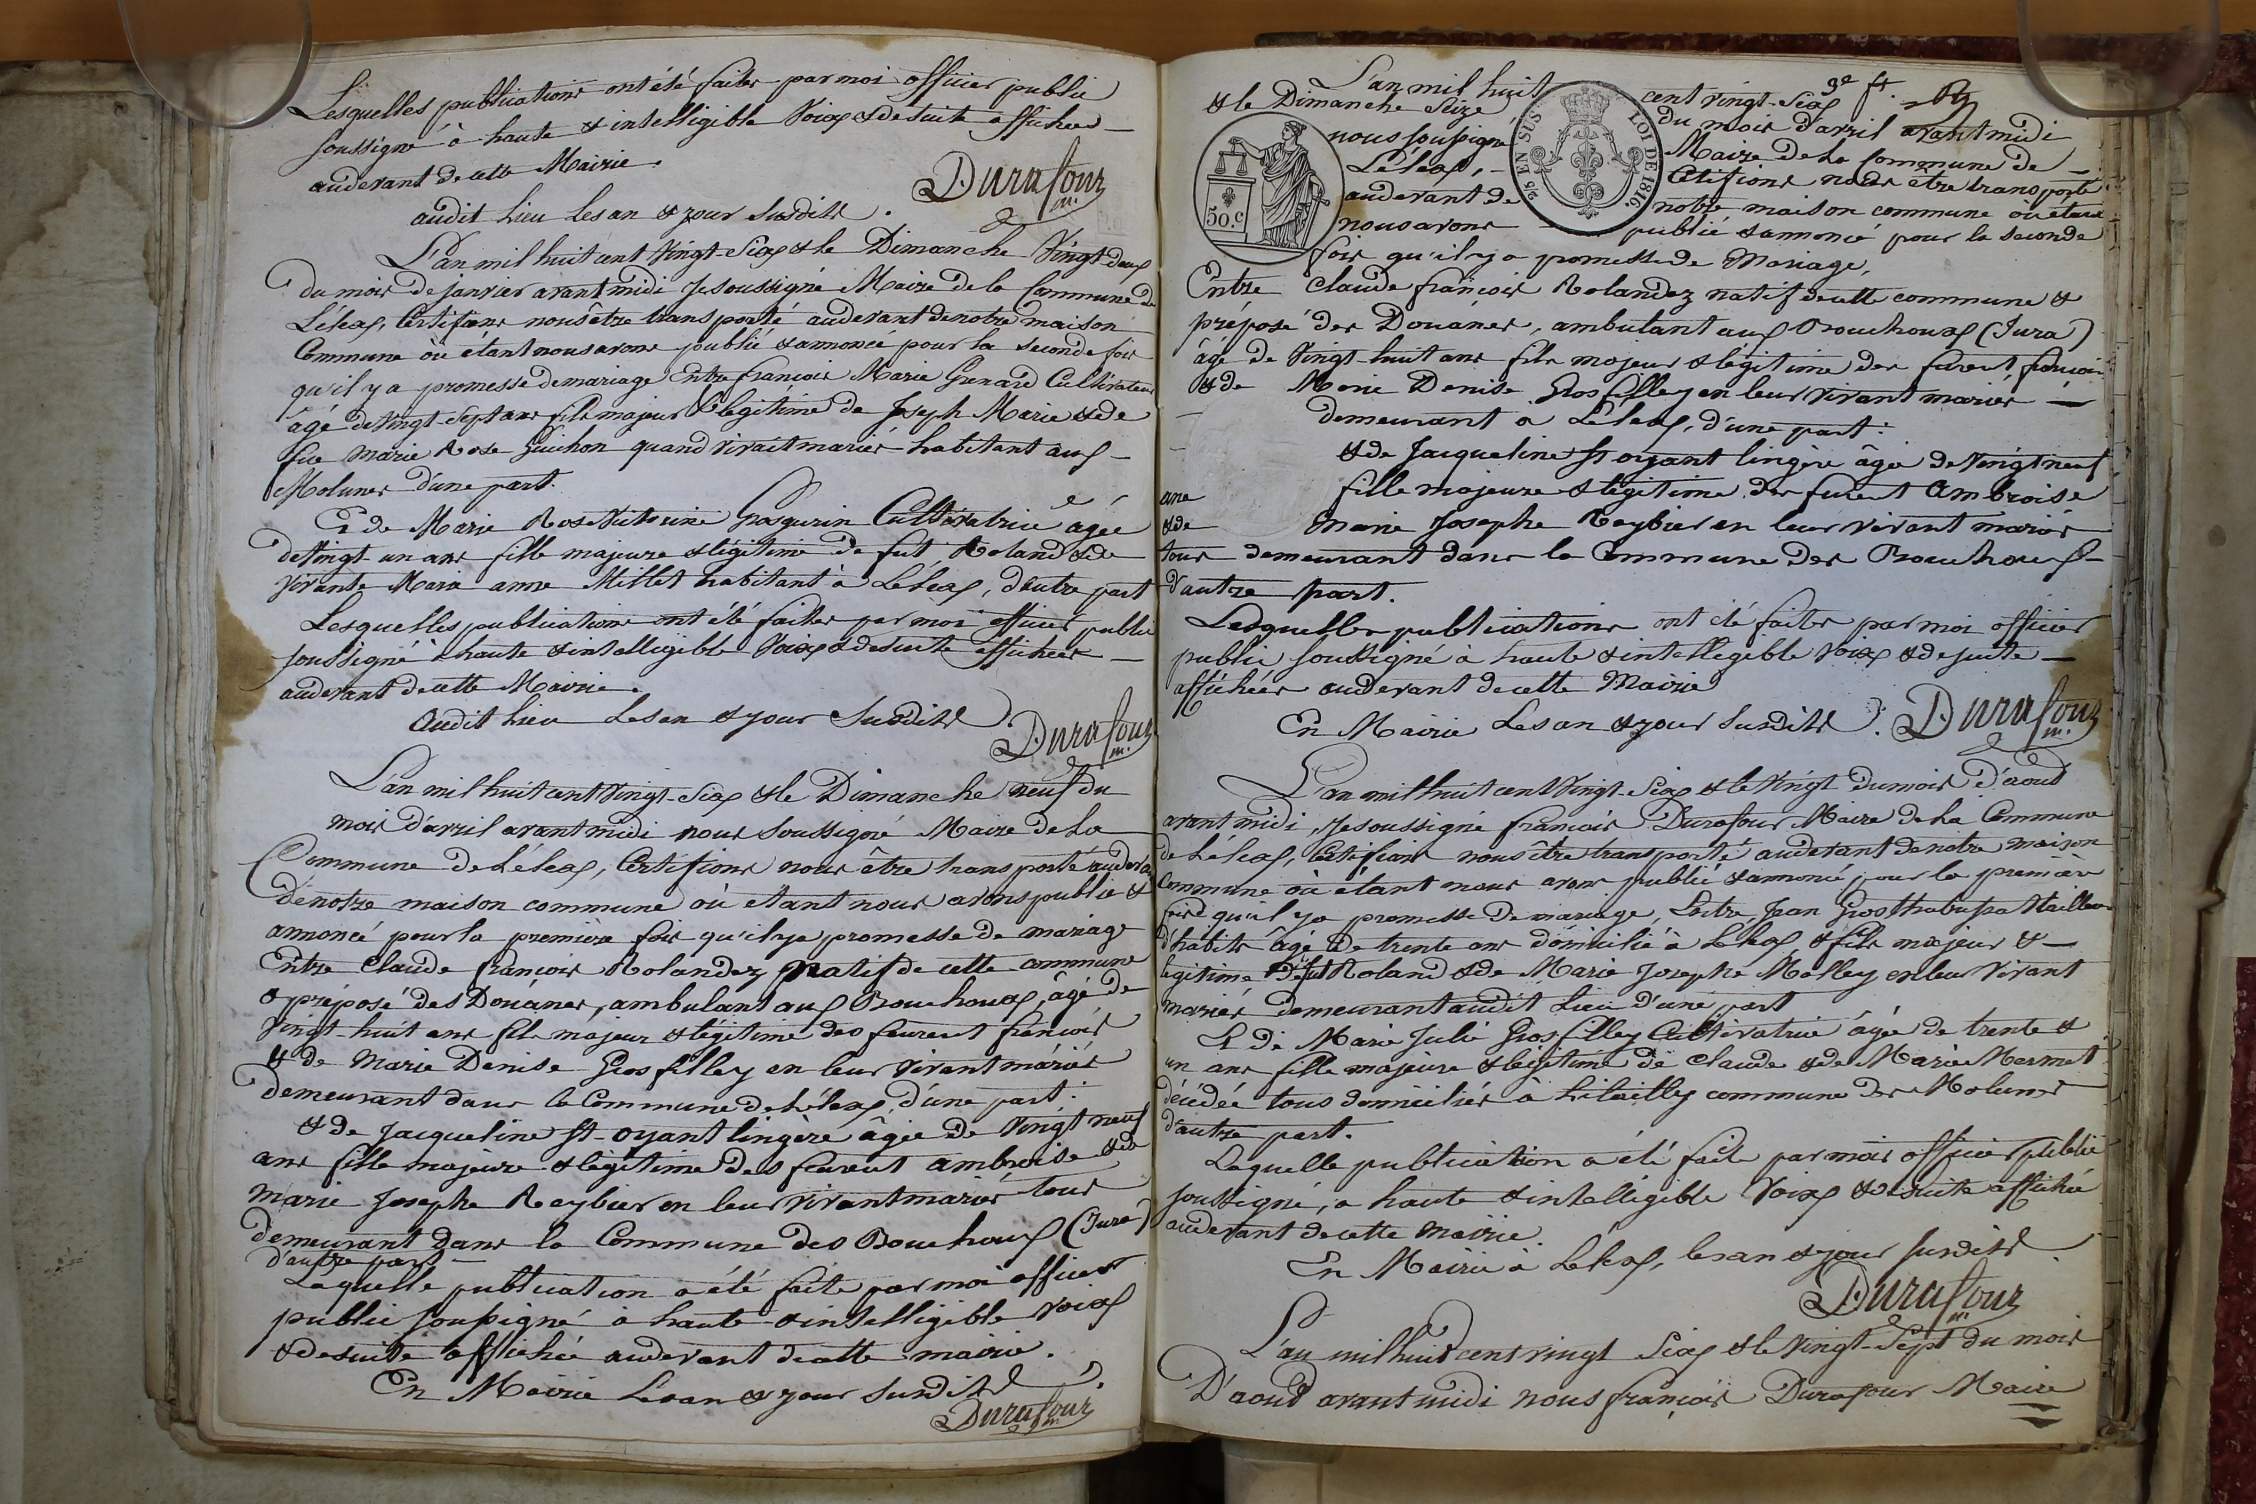 Lesquelles publications ont été faites par moi officier public
soussigné à haute & intelligible Voix & de suite affichées
audevant de cette Mairie.
audit Lieu Les an & jour Susdits.
Durafour
m.
L'an mil huit cent Vingt-Six & le Dimanche Vingt deux
du mois de Janvier avant midi Je soussigné Maire de la Commune de
Lélex, Certifions nous être transporté audevant de notre maison
Commune où étant nous avons publié & annoncé pour la seconde fois
qu'il y a promesse de mariage Entre françois Marie Grenard Cultivateur
âgé de Vingt-Sept ans fils majeur & légitime de Joseph Marie & de
fue Marie Rose Guichon quand vivait mariés habitant aux
Molunes d'une part.
Et de Marie Rose Victorine Grosgurin Cultivatrice âgée
de Vingt-un ans fille majeure & légitime de fut Roland & de
vivante Mara anne Millet habitant à Lélex, d'autre part
Lesquelles publications ont été faites par moi officier public
soussigné à haute & intelligible Voix & de suite affichées
audevant de cette Mairie.
Audit Lieu Les an & jour Susdits.
Durafour
m.
L'an mil huit cent Vingt-Six & le Dimanche neuf du
mois d'avril avant midi nous Soussigné Maire de La
Commune de Lélex, Certifions nous être transporté audevant
de notre maison commune où étant nous avons publié &
annoncé pour la première fois qu'il y a promesse de mariage
Entre Claude françois Rolandez natif de cette commune
& préposé des Douanes, ambulant aux Bouchoux, âgé de
Vingt-huit ans fils majeur & légitime des feurent françois
& de Marie Denise Grosfilley en leur vivant mariés
demeurant dans la Commune de Lélex, d'une part.
& de Jacqueline St-oyant lingère âgée de Vingt neuf
ans fille majeure & légitime des feurent ambroise & de
Marie Josephe Reybier en leur vivant mariés tous
demeurant Dans la Commune des Bouchoux (Jura)
d'autre part
Laquelle publication a été faite par moi officier
public soussigné à haute & intelligible voix
& de suite affichée audevant de cette mairie.
En Mairie Les an & jour Susdits.
Durafour
m.
3e ft.
L'an mil huit cent vingt-Six
& le Dimanche Seize du mois d'avril avant midi
nous soussigné Maire de La Commune de
Lélex, Certifions nous être transporté
audevant de notre maison commune où étant
nous avons publié & annoncé pour la seconde
fois qu'il y a promesse de Mariage,
50.c
25 EN SUS
LOI DE 1816.
Entre Claude françois Rolandez natif de cette commune &
préposé des Douanes, ambulant aux Bouchoux (Jura)
âgé de Vingt huit ans fils majeur & légitime des furent françois
& de Marie Denise Grosfilley en leur vivant mariés
demeurant a Lélex, d'une part:
& de Jacqueline St oyant lingère âgée de Vingt neuf
ans fille majeure & légitime des furent Ambroise
& de Marie Josephe Reybier en leur vivant mariés
tous demeurant dans la Commune des Bouchoux
d'autre part.
Lesquelles publications ont été faites par moi officier
public soussigné à haute & intelligible voix & de suite
affichées audevant de cette Mairie
En Mairie Les an & jour Susdits.
Durafour
m.
L'an mil huit cent Vingt-Six & le Vingt du mois d'aout
avant midi, Je soussigné françois Durafour Maire de La Commune
de Lélex, Certifions nous être transporté audevant de notre maison
commune où étant nous avons publié & annoncé pour la première
fois qu'il y a promesse de mariage, Entre, Jean Grosthabussiat tailleur
d'habits âgé de trente ans domicilié à Lélex, & fils majeur &
légitime de fut Roland & de Marie Josephe Molley en leur vivant
mariés demeurant audit Lieu d'une part
Et de Marie Julie Grosfilley Cultivatrice âgée de trente &
un ans fille majeure & légitime de Claude & de Marie Mermet
décédée tous domiciliés à commune des Molunes
d'autre part.
Laquelle publication a été faite par mois officier public
soussigné, a haute & intelligible Voix & de suite affichée
audevant de cette mairie.
En Mairie à Lélex, les an & jour susdits.
Durafour
m.
L'an mil huit cent vingt Six & le Vingt-Sept du mois
D'aout avant midi nous françois Durafour Maire